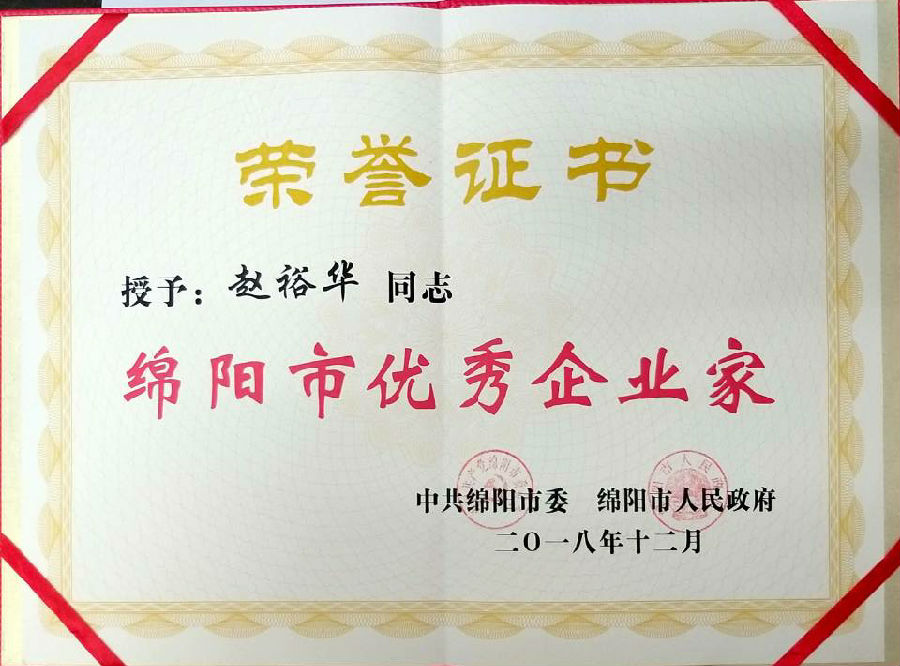 荣誉证书
授予：赵裕华 同志
绵阳市优秀企业家
中共绵阳市委 绵阳市人民政府
二〇一八年十二月